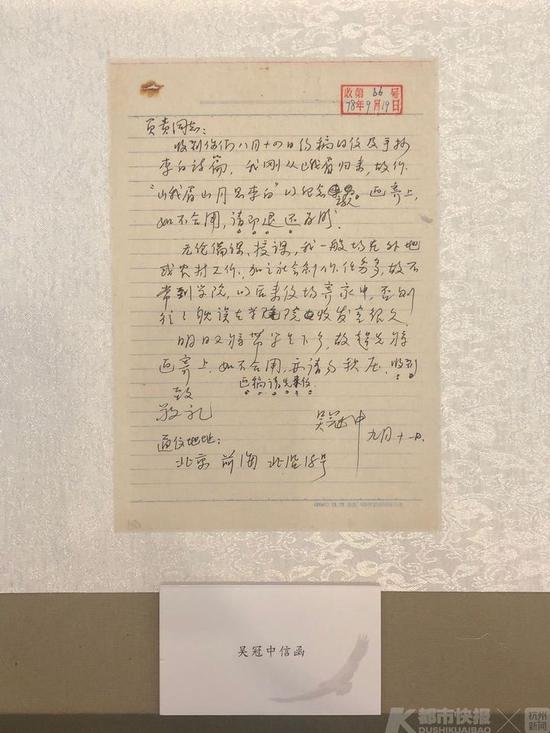 收第 66 号
78年9月19日
负责同志：
收到你们八月十四日约稿的信及手抄
李白诗篇，我刚从峨眉归来，故作
"峨眉山月 李白"以纪念 画寄上，
如不合用，请即退还为盼。
无论备课、授课，我一般均在外地
或农村工作，加之社会创作任务多，故不
常到学院，以后来信均寄家中，否则
往往耽误在学院收发室很久。
明日又将带学生下乡，故趁先将
画寄上，如不合用，亦请勿积压。收到
画稿请先来信。
致
敬礼
吴冠中
九月十一日
通信地址：
北京 前海 北沿18号
吴冠中信函
都市快报
DUSHIKUAIBAO
杭州
新闻